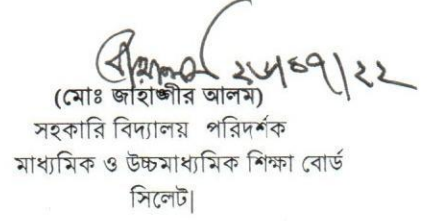 ২৬/০৭/২২
(মোঃ জাহাঙ্গীর আলম)
সহকারি বিদ্যালয় পরিদর্শক
মাধ্যমিক ও উচ্চমাধ্যমিক শিক্ষা বোর্ড
সিলেট|